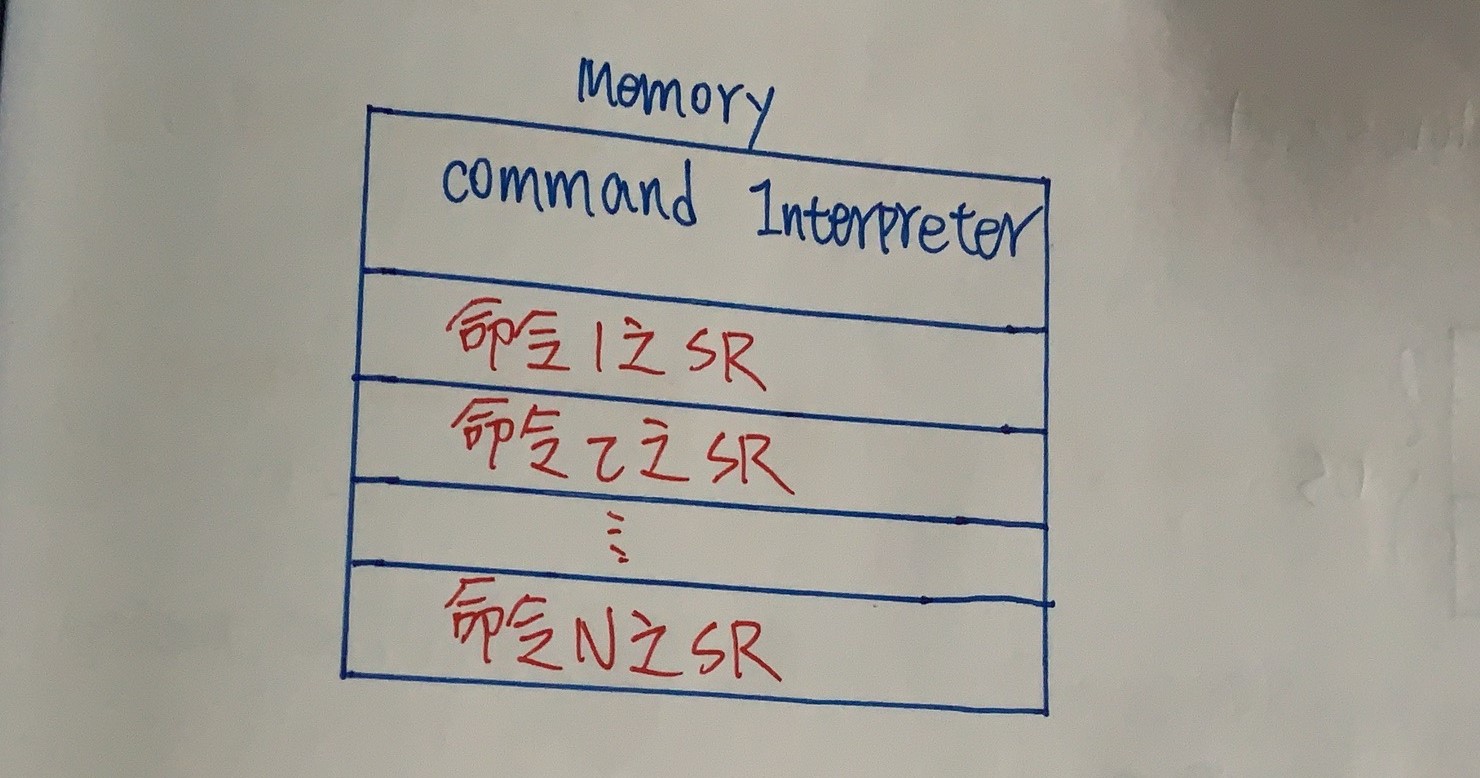 Memory
command Interpreter
命令1之SR
命令2之SR
⋮
命令N之SR